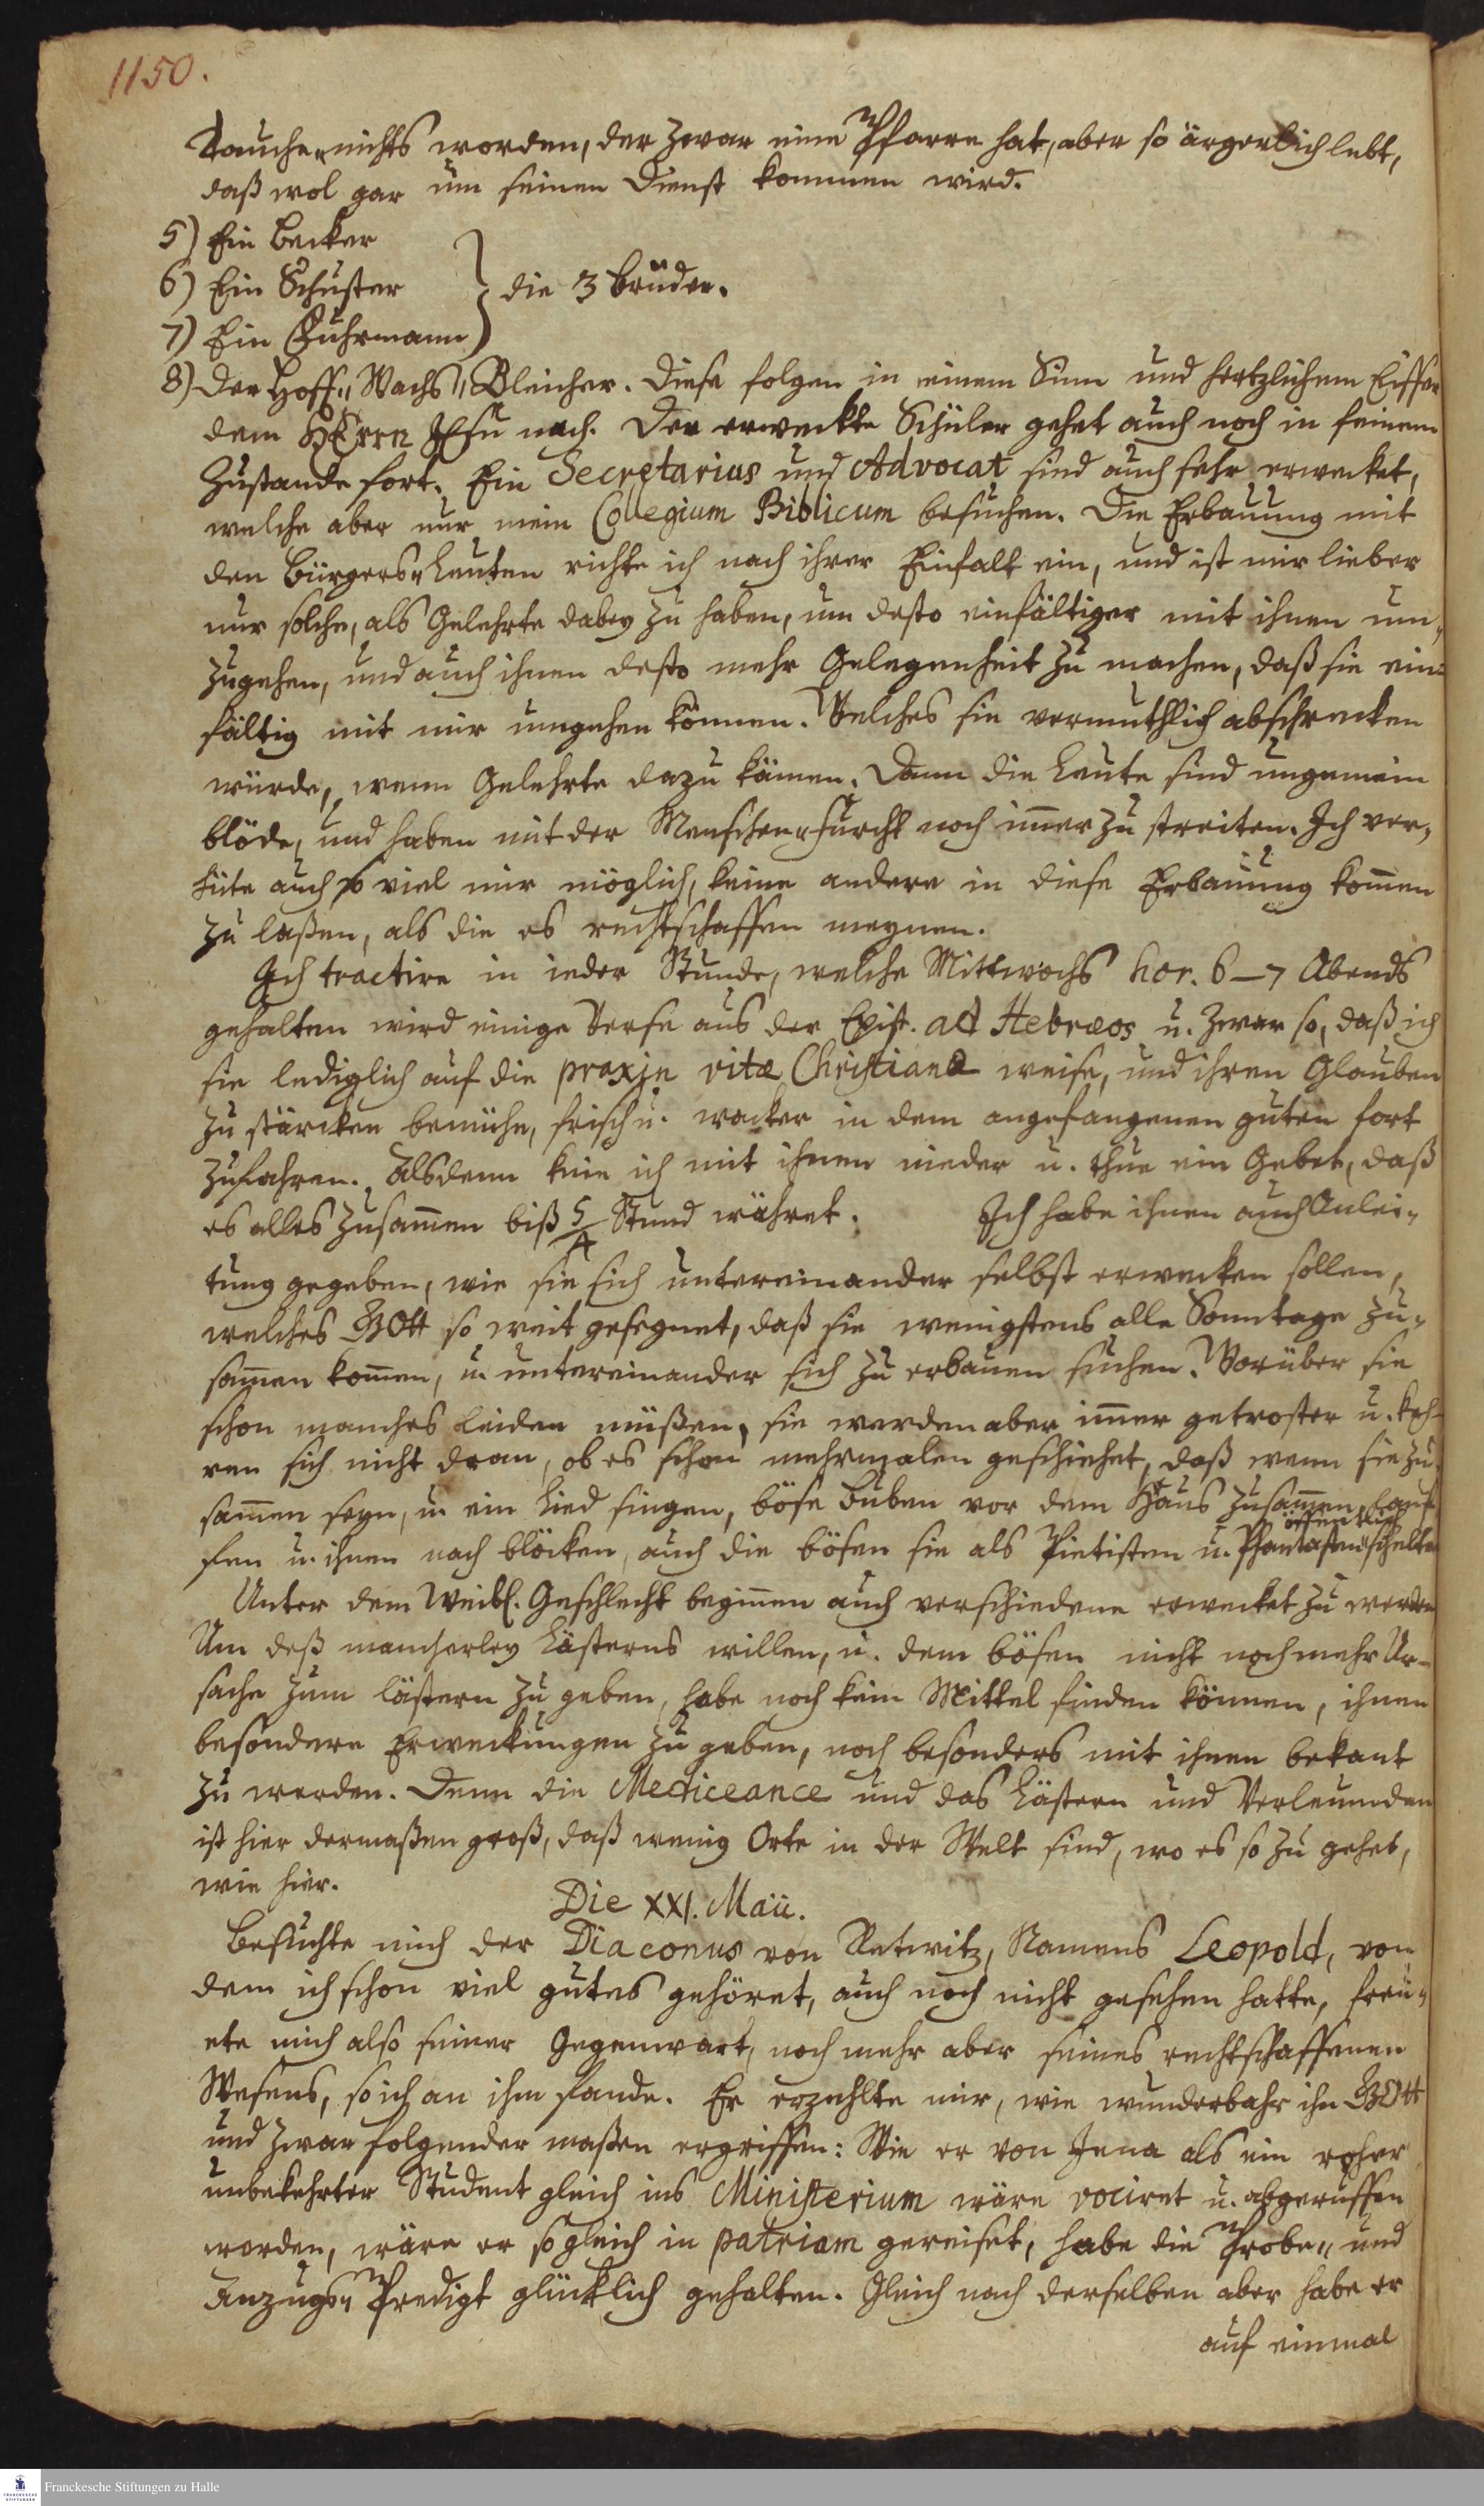 1150.
Tauche nichts worden, der zwar eine Pfarre hat, aber so ärgerlich lebt,
daß wol gar um seinen Dienst kommen wird.
5) Ein Becker
6) Ein Schuster } die 3 Brüder.
7) Ein Fuhrmann
8) Der Hoff-Wachs-Bleicher. Diese folgen in einem Sinn und hertzlichem Eiffer
dem HErrn JEsu nach. Der erweckte Schüler gehet auch noch in seinem
Zustande fort. Ein Secretarius und Advocat sind auch sehr erwecket,
welche aber nur mein Collegium Biblicum besuchen. Die Erbauung mit
den Bürgers-Leuten richte ich nach ihrer Einfalt ein, und ist mir lieber
nur solche, als Gelehrte dabey zu haben, um desto einfältiger mit ihnen um-
zugehen, und auch ihnen desto mehr Gelegenheit zu machen, daß sie ein-
fältig mit mir umgehen können. Welches sie vermuthlich abschrecken
würde, wenn Gelehrte dazu kämen. Dann die Leute sind ungemein
blöde, und haben mit der Menschen-furcht noch im̅er zu streiten. Ich ver-
hüte auch so viel mir möglich, keine andere in diese Erbauung kom̅en
zu laßen, als die es rechtschaffen meynen.
Ich tractire in ieder Stunde, welche Mittwochs hor. 6–7 Abends
gehalten wird einige Verse aus der Epist. ad Hebræos u. zwar so, daß ich
sie lediglich auf die praxin vitæ Christianæ weise, und ihren Glauben
zu stärcken bemühe, frisch u. wacker in dem angefangenen guten fort
zufahren. Alsdenn knie ich mit ihnen nieder u. thue ein Gebet, daß
es alles zusam̅en biß 5/4 Stund währet. Ich habe ihnen auch Anlei-
tung gegeben, wie sie sich untereinander selbst erwecken sollen,
welches GOtt so weit gesegnet, daß sie wenigstens alle Sonntage zu-
sam̅en kom̅en, u. untereinander sich zu erbauen suchen. Worüber sie
schon manches leiden müßen, sie werden aber im̅er getroster u. keh-
ren sich nicht dran, ob es schon mehrmalen geschiehet, daß wenn sie zu
sam̅en seyn, u. ein Lied singen, böse Buben vor dem Haus zusam̅en lauf-
fen u. ihnen nach blöcken, auch die bösen sie als Pietisten u. Phantasten öffentlich schelten
Unter dem Weibl. Geschlecht begin̅en auch verschiedene erwecket zu werden
Um deß mancherley Lästerns willen, u. dem bösen nicht noch mehr Ur-
sache zum lästern zu geben, habe noch kein Mittel finden können, ihnen
besondere Erweckungen zu geben, noch besonders mit ihnen bekant
zu werden. Denn die Mediceance und das Lästern und Verleumden
ist hier dermaßen groß, daß wenig Orte in der Welt sind, wo es so zu gehet,
wie hier.
Die XXI. Maii.
Besuchte mich der Diaconus von Retwitz, Namens Leopold, von
dem ich schon viel gutes gehöret, auch noch nicht gesehen hatte, freu-
ete mich also seiner Gegenwart, noch mehr aber seines rechtschaffenen
Wesens, so ich an ihm fande. Er erzehlte mir, wie wunderbahr ihn GOtt
und zwar folgender maßen ergriffen: Wie er von Jena als ein roher
unbekehrter Student gleich ins Ministerium wäre vociret u. abgeruffen
worden, wäre er sogleich in patriam gereiset, habe die Probe- und
Anzugs-Predigt glücklich gehalten. Gleich nach derselben aber habe er
auf einmal
Franckesche Stiftungen zu Halle